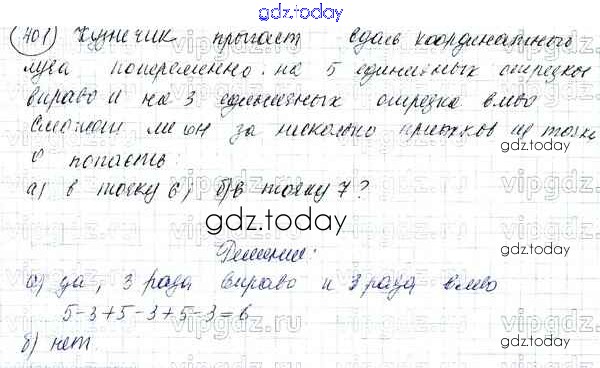 gdz.today
401 Кузнечик прыгает вдоль координатного
луча попеременно на 5 единичных отрезков
вправо и на 3 единичных отрезка влево
Сможет ли он за несколько прыжков из точки
О попасть:
а) в точку 6; б) в точку 7?
gdz.today
Решение:
а) да, 3 раза вправо и 3 раза влево
5-3+5-3+5-3=6
б) нет
gdz.today
gdz.today
gdz.today